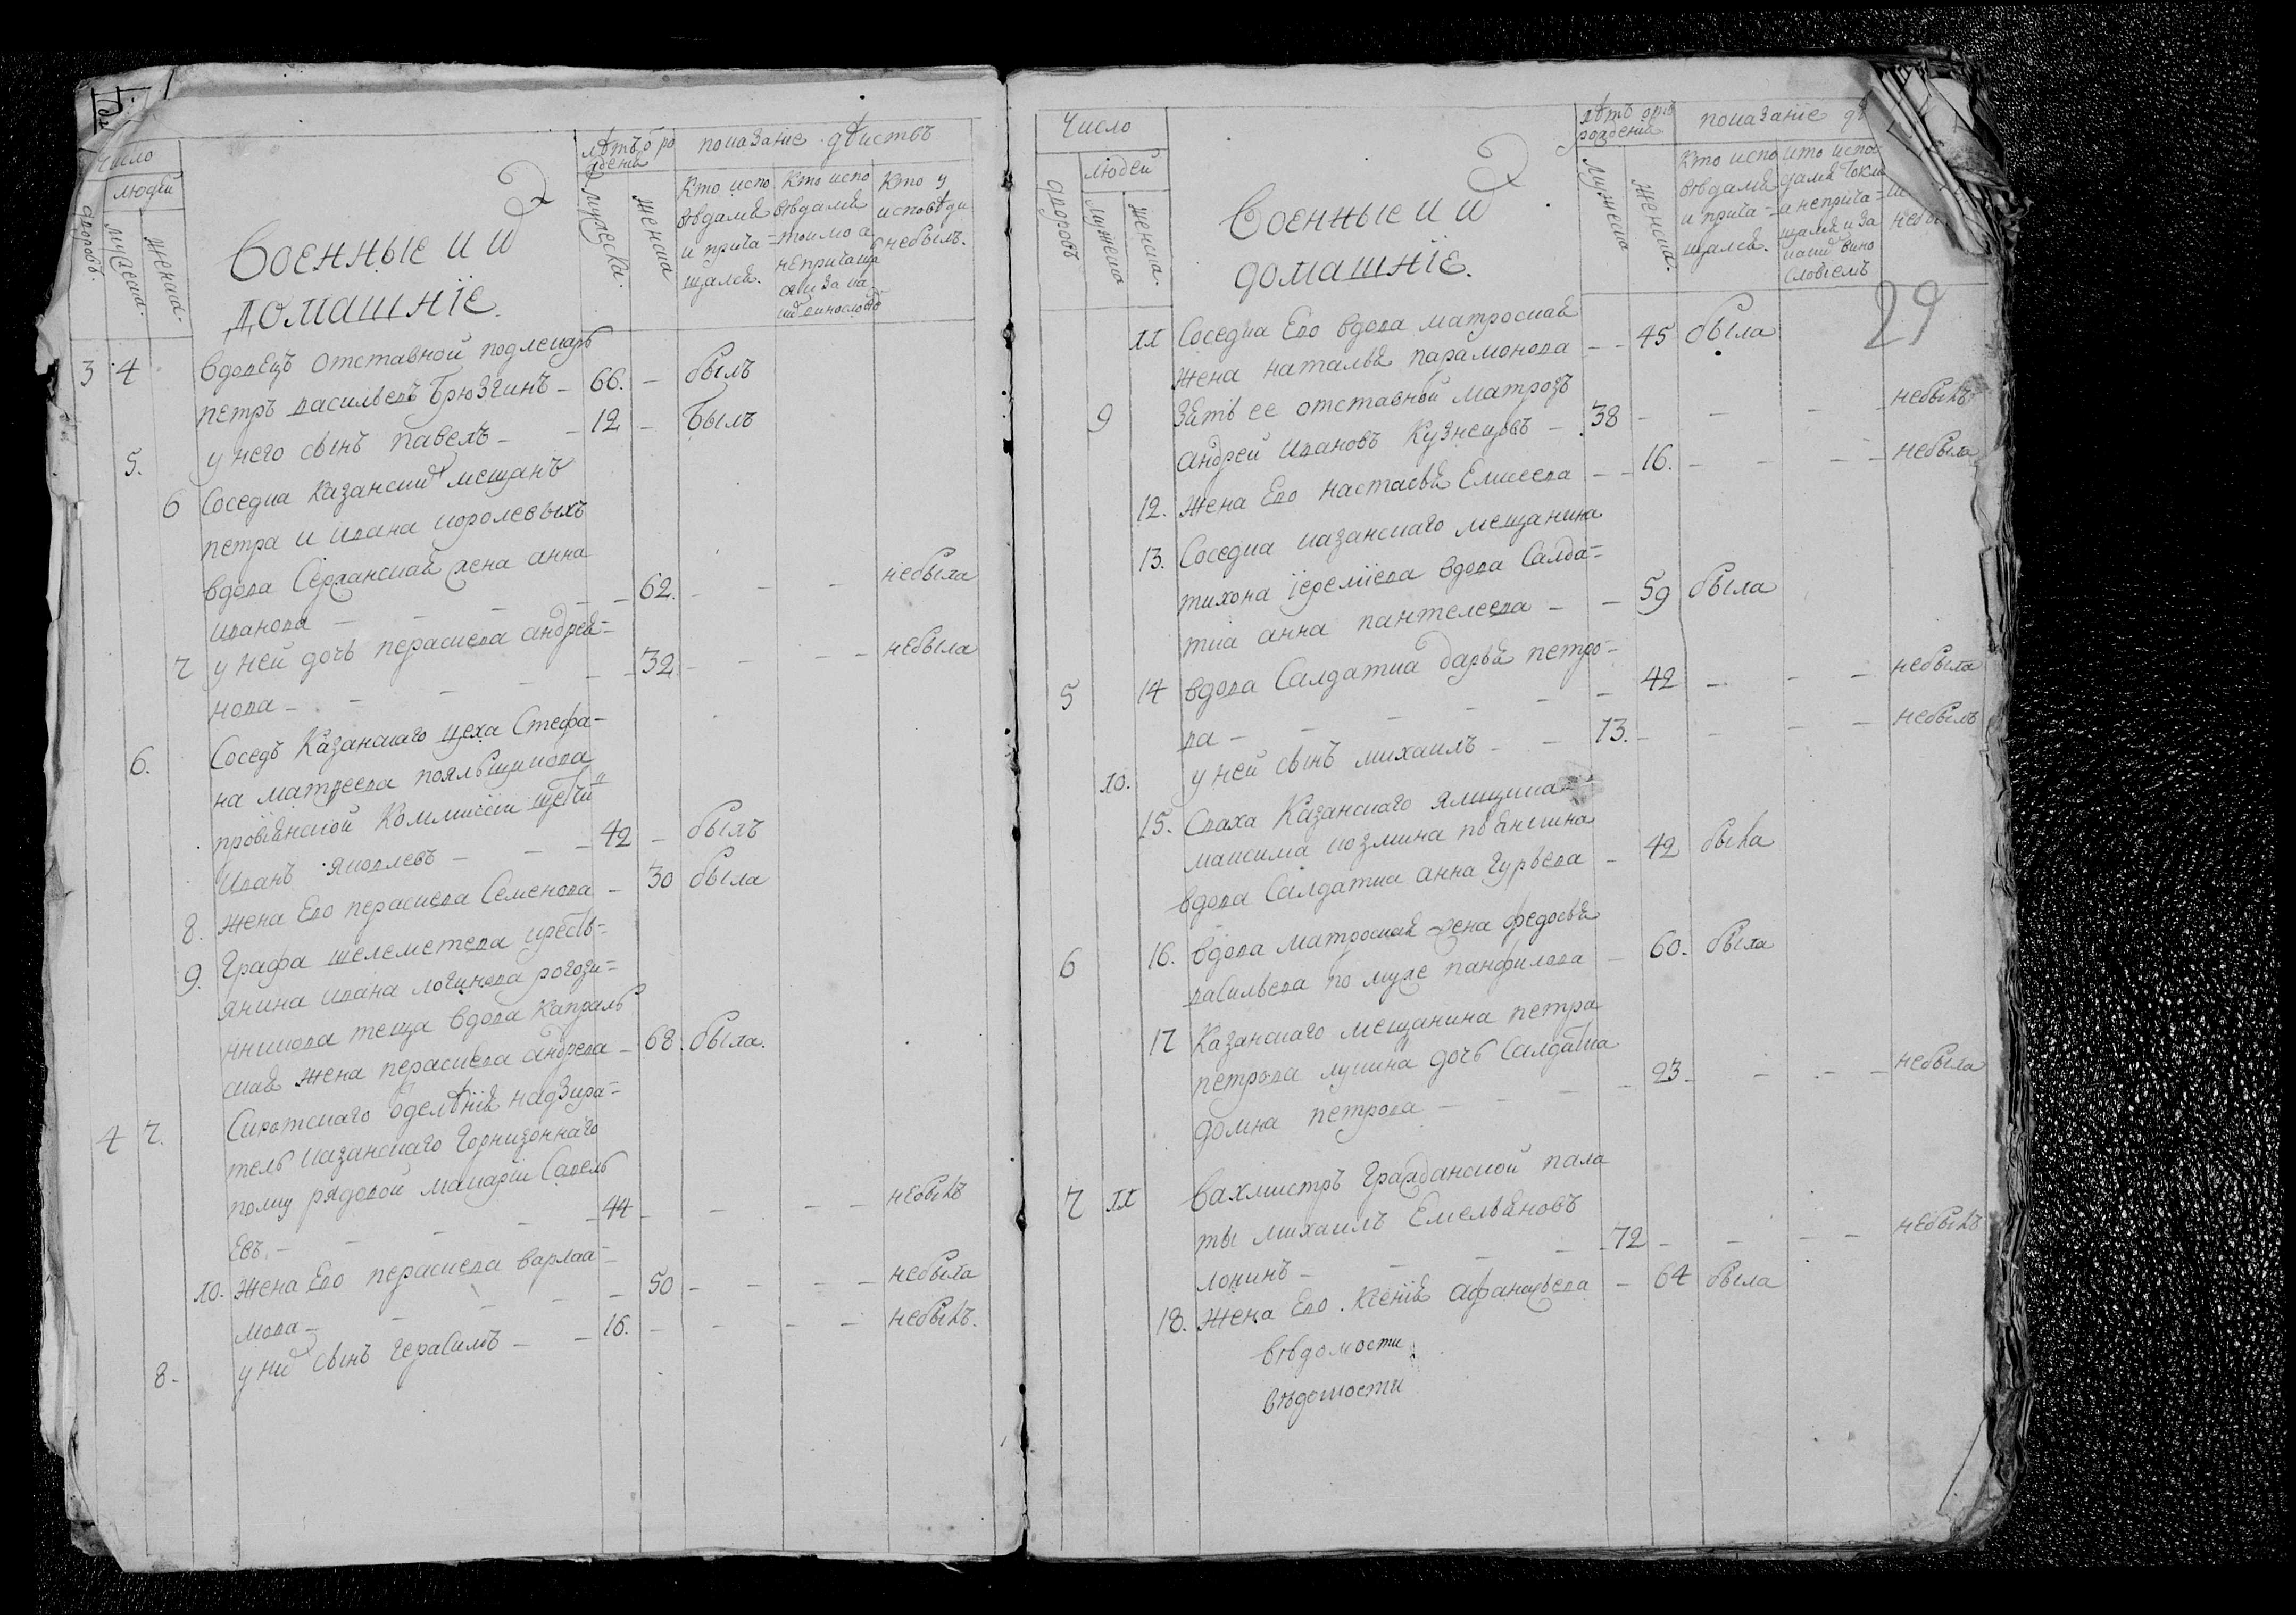 Число
людей
дворовъ.
мужеска.
женска.
Военные и их
домашнїе.
лѣтъ о ро
ждения
мужеска.
женска
показанїе дѣиствъ
Кто испо
вѣдался
и прича-
щался.
Кто испо
вѣдался
токмо а
непричаща
Кто у
исповѣди
небылъ.
3 4 вдовецъ отставной подлекарь
петръ васильевъ Брюзгинъ - 66. - былъ
5. у него сынъ павелъ - - 12 - Былъ
6 Соседка Казанских мещанъ
петра и ивана королевыхъ
вдова Сержанская жена анна
иванова - - - - - 62. - - - небыла
7 у ней дочь параскева андрея=
нова - - - - - - 32 - - - - небыла
6. Соседъ Казанскаго цеха Стефа-
на матвеева
провїянской Коммисїи
Иванъ яковлевъ - - - 42 - былъ
8. жена Ево параскева Семенова - 30 была
9. Графа шелеметева кресть-
янина ивана логинова рогози=
нникова теща вдова Капраль
ская жена параскева андреева - 68. была.
4 7. Сиротскаго оделѣнїя надзира=
тель казанскаго Горнизоннаго
полку рядовой макарїи Савель
евъ. - - - - - 44 - - - - небылъ
10. жена Ево параскева варлаа-
мова - - - - - 50 - - - - небыла
8 - у них сынъ герасимъ - - 16. - - - - небылъ.
Число
людей
дворовъ
мужеска
женска.
Военные и их
домашнїе.
лѣтъ отъ
рождения
мужеска
женска.
показанїе дѣ
Кто испо
вѣдался
и прича-
щался.
кто испо
дался токм
и неприча-
щался и за
каким вино
словїемъ
небы
29
11 Соседка Ево вдова матроская
жена наталья парамонова - - 45 была
9 Зять ее отставной матрозъ
андрей ивановъ Кузнецовъ - 38 - - - - небылъ
12. жена Ево настасья Елисеева - - 16. - - - - небыла
13. Соседка казанскаго мещанина
тихона їеремїева вдова Салда=
тка анна пантелеева - - 59 была
5 14 вдова Салдатка дарья петро-
ва - - - - - - 42 - - - небыла
10. у ней сынъ михаилъ - - 13. - - - - небылъ
15. Сваха Казанскаго ямщика
максима козмина пьянкина
вдова Салдатка анна гурьева - 42 была
6 16. вдова матроская жена федосья
васильева по муже панфилова - 60. была
17 Казанскаго мещанина петра
петрова лукина дочь салдатка
домна петрова - - - - 23 - - - - небыла
7 11 вахмистръ Гражданской пала
ты михаилъ Емельяновъ
лонинъ - - - - - 72 - - - - небылъ
18. жена Ево. Ксенїя афанасьева - 64 была
вѣдомости
вѣдомости